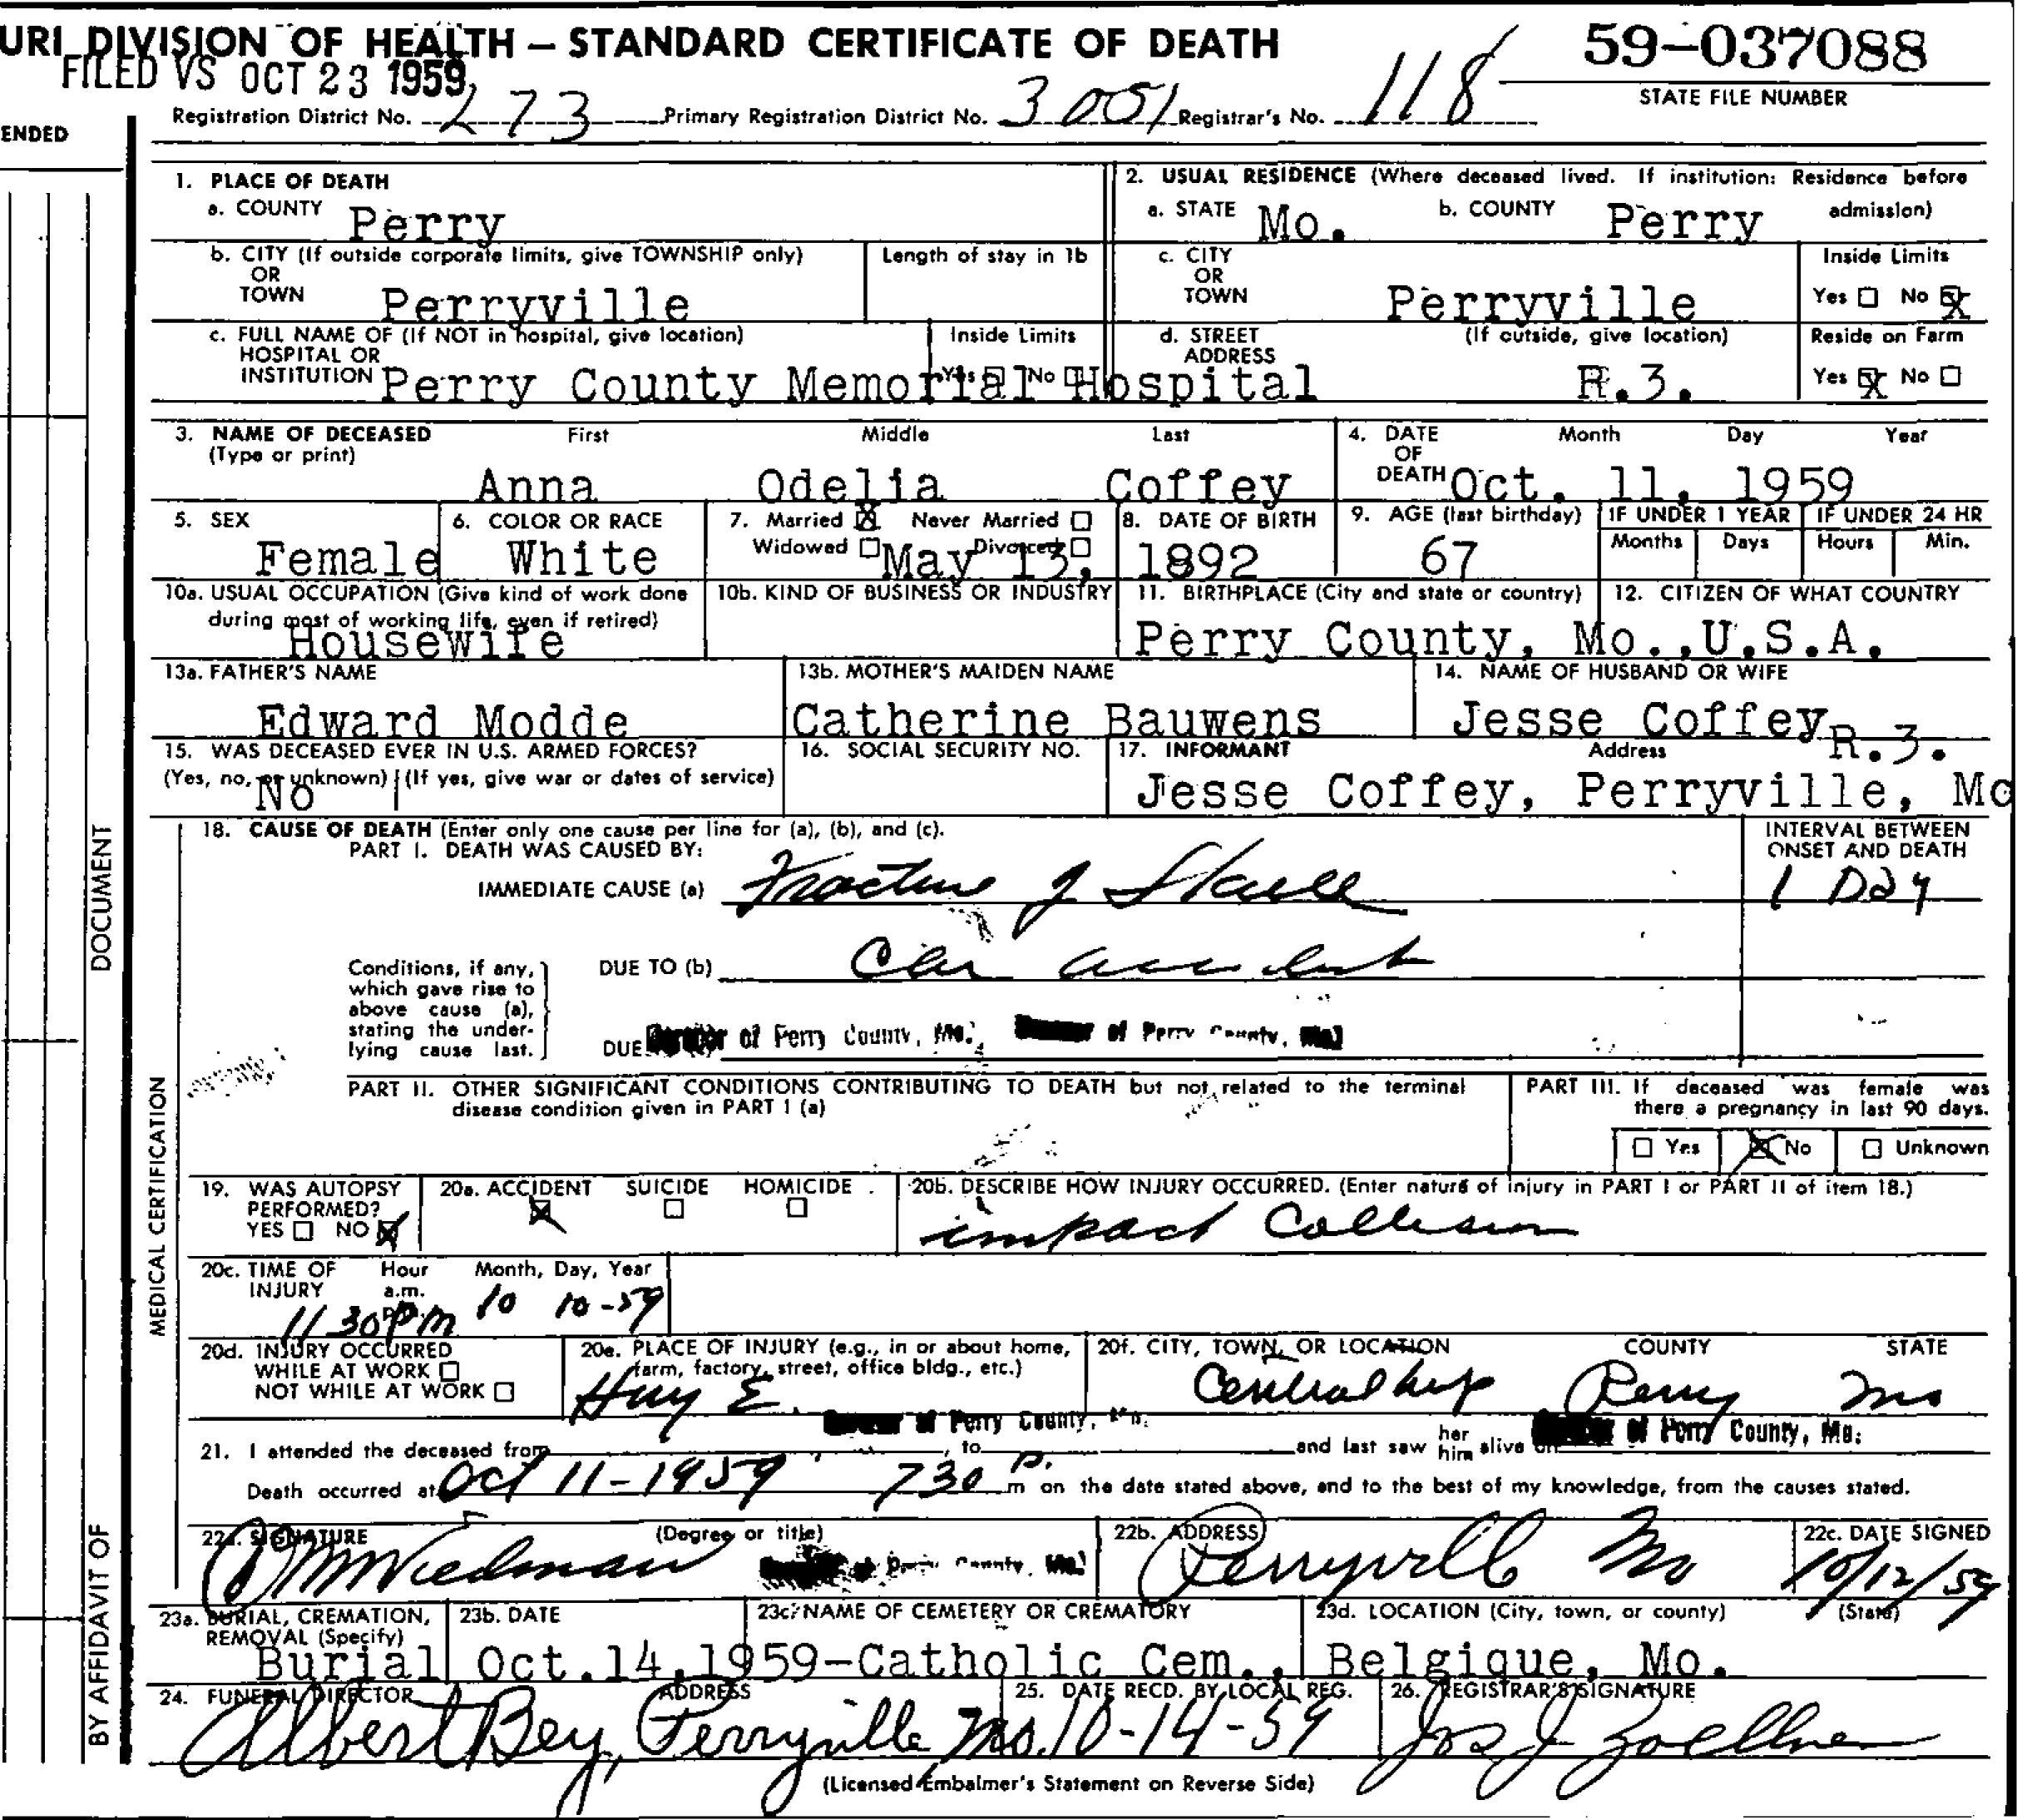 URI DIVISION OF HEALTH — STANDARD CERTIFICATE OF DEATH
59-037088
FILED VS OCT 23 1959
STATE FILE NUMBER
Registration District No. 273 Primary Registration District No. 3051 Registrar's No. 118
ENDED
1. PLACE OF DEATH
a. COUNTY Perry
2. USUAL RESIDENCE (Where deceased lived. If institution: Residence before admission)
a. STATE Mo. b. COUNTY Perry
b. CITY (If outside corporate limits, give TOWNSHIP only) OR TOWN Perryville
Length of stay in 1b
c. CITY OR TOWN Perryville
Inside Limits Yes No X
c. FULL NAME OF (If NOT in hospital, give location) HOSPITAL OR INSTITUTION Perry County Memorial Hospital
Inside Limits Yes No
d. STREET ADDRESS (If outside, give location) R.3.
Reside on Farm Yes X No
3. NAME OF DECEASED (Type or print)
First Middle Last
Anna Odelia Coffey
4. DATE OF DEATH Month Day Year
Oct. 11, 1959
5. SEX Female
6. COLOR OR RACE White
7. Married X Never Married Widowed Divorced
8. DATE OF BIRTH May 13, 1892
9. AGE (last birthday) 67
IF UNDER 1 YEAR Months Days
IF UNDER 24 HR Hours Min.
10a. USUAL OCCUPATION (Give kind of work done during most of working life, even if retired) Housewife
10b. KIND OF BUSINESS OR INDUSTRY
11. BIRTHPLACE (City and state or country) Perry County, Mo.,
12. CITIZEN OF WHAT COUNTRY U.S.A.
13a. FATHER'S NAME Edward Modde
13b. MOTHER'S MAIDEN NAME Catherine Bauwens
14. NAME OF HUSBAND OR WIFE Jesse Coffey
15. WAS DECEASED EVER IN U.S. ARMED FORCES?
(Yes, no, or unknown) (If yes, give war or dates of service) No
16. SOCIAL SECURITY NO.
17. INFORMANT Address R.3.
Jesse Coffey, Perryville, Mo
18. CAUSE OF DEATH (Enter only one cause per line for (a), (b), and (c).
PART I. DEATH WAS CAUSED BY:
INTERVAL BETWEEN ONSET AND DEATH
IMMEDIATE CAUSE (a) Fracture of Skull 1 Day
Conditions, if any, which gave rise to above cause (a), stating the underlying cause last.
DUE TO (b) Car accident
DUE of Perry County, Mo. of Perry County, Mo.
PART II. OTHER SIGNIFICANT CONDITIONS CONTRIBUTING TO DEATH but not related to the terminal disease condition given in PART I (a)
PART III. If deceased was female was there a pregnancy in last 90 days.
Yes X No Unknown
19. WAS AUTOPSY PERFORMED? YES NO X
20a. ACCIDENT X SUICIDE HOMICIDE
20b. DESCRIBE HOW INJURY OCCURRED. (Enter nature of injury in PART I or PART II of item 18.)
impact Collision
20c. TIME OF INJURY Hour a.m. Month, Day, Year
11 30 Pm 10 10-59
20d. INJURY OCCURRED WHILE AT WORK NOT WHILE AT WORK
20e. PLACE OF INJURY (e.g., in or about home, farm, factory, street, office bldg., etc.)
Hwy E
20f. CITY, TOWN, OR LOCATION COUNTY STATE
Central twp Perry Mo
of Perry County, Mo.
of Perry County, Mo.
21. I attended the deceased from , to and last saw her him alive on
Death occurred at Oct 11-1959 730 P. m on the date stated above, and to the best of my knowledge, from the causes stated.
22a. SIGNATURE (Degree or title)
Wiedman of Perry County, Mo.
22b. ADDRESS Perryville Mo
22c. DATE SIGNED 10/12/59
23a. BURIAL, CREMATION, REMOVAL (Specify) Burial
23b. DATE Oct.14,1959-
23c. NAME OF CEMETERY OR CREMATORY Catholic Cem.,
23d. LOCATION (City, town, or county) (State) Belgique, Mo.
24. FUNERAL DIRECTOR ADDRESS
Albert Bey, Perryville Mo.
25. DATE RECD. BY LOCAL REG. 10-14-59
26. REGISTRAR'S SIGNATURE Jos J Zoellner
(Licensed Embalmer's Statement on Reverse Side)
DOCUMENT
MEDICAL CERTIFICATION
BY AFFIDAVIT OF